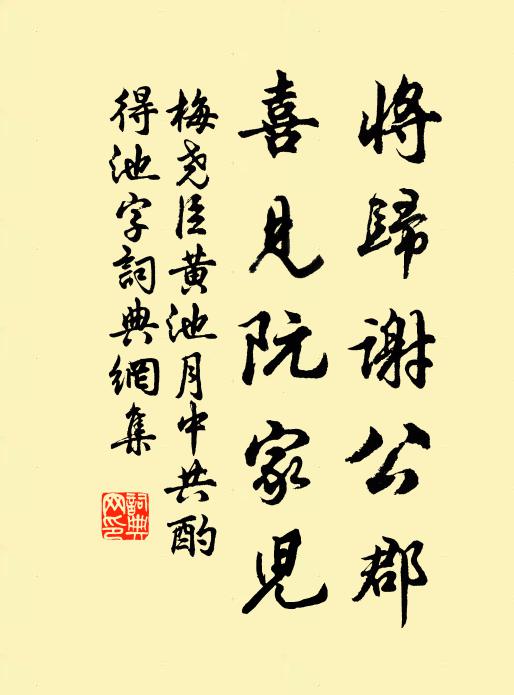 將歸謝公郡
喜見阮家兒
梅堯臣黃池月中共酌
得池字詞典網集
詞典
网印